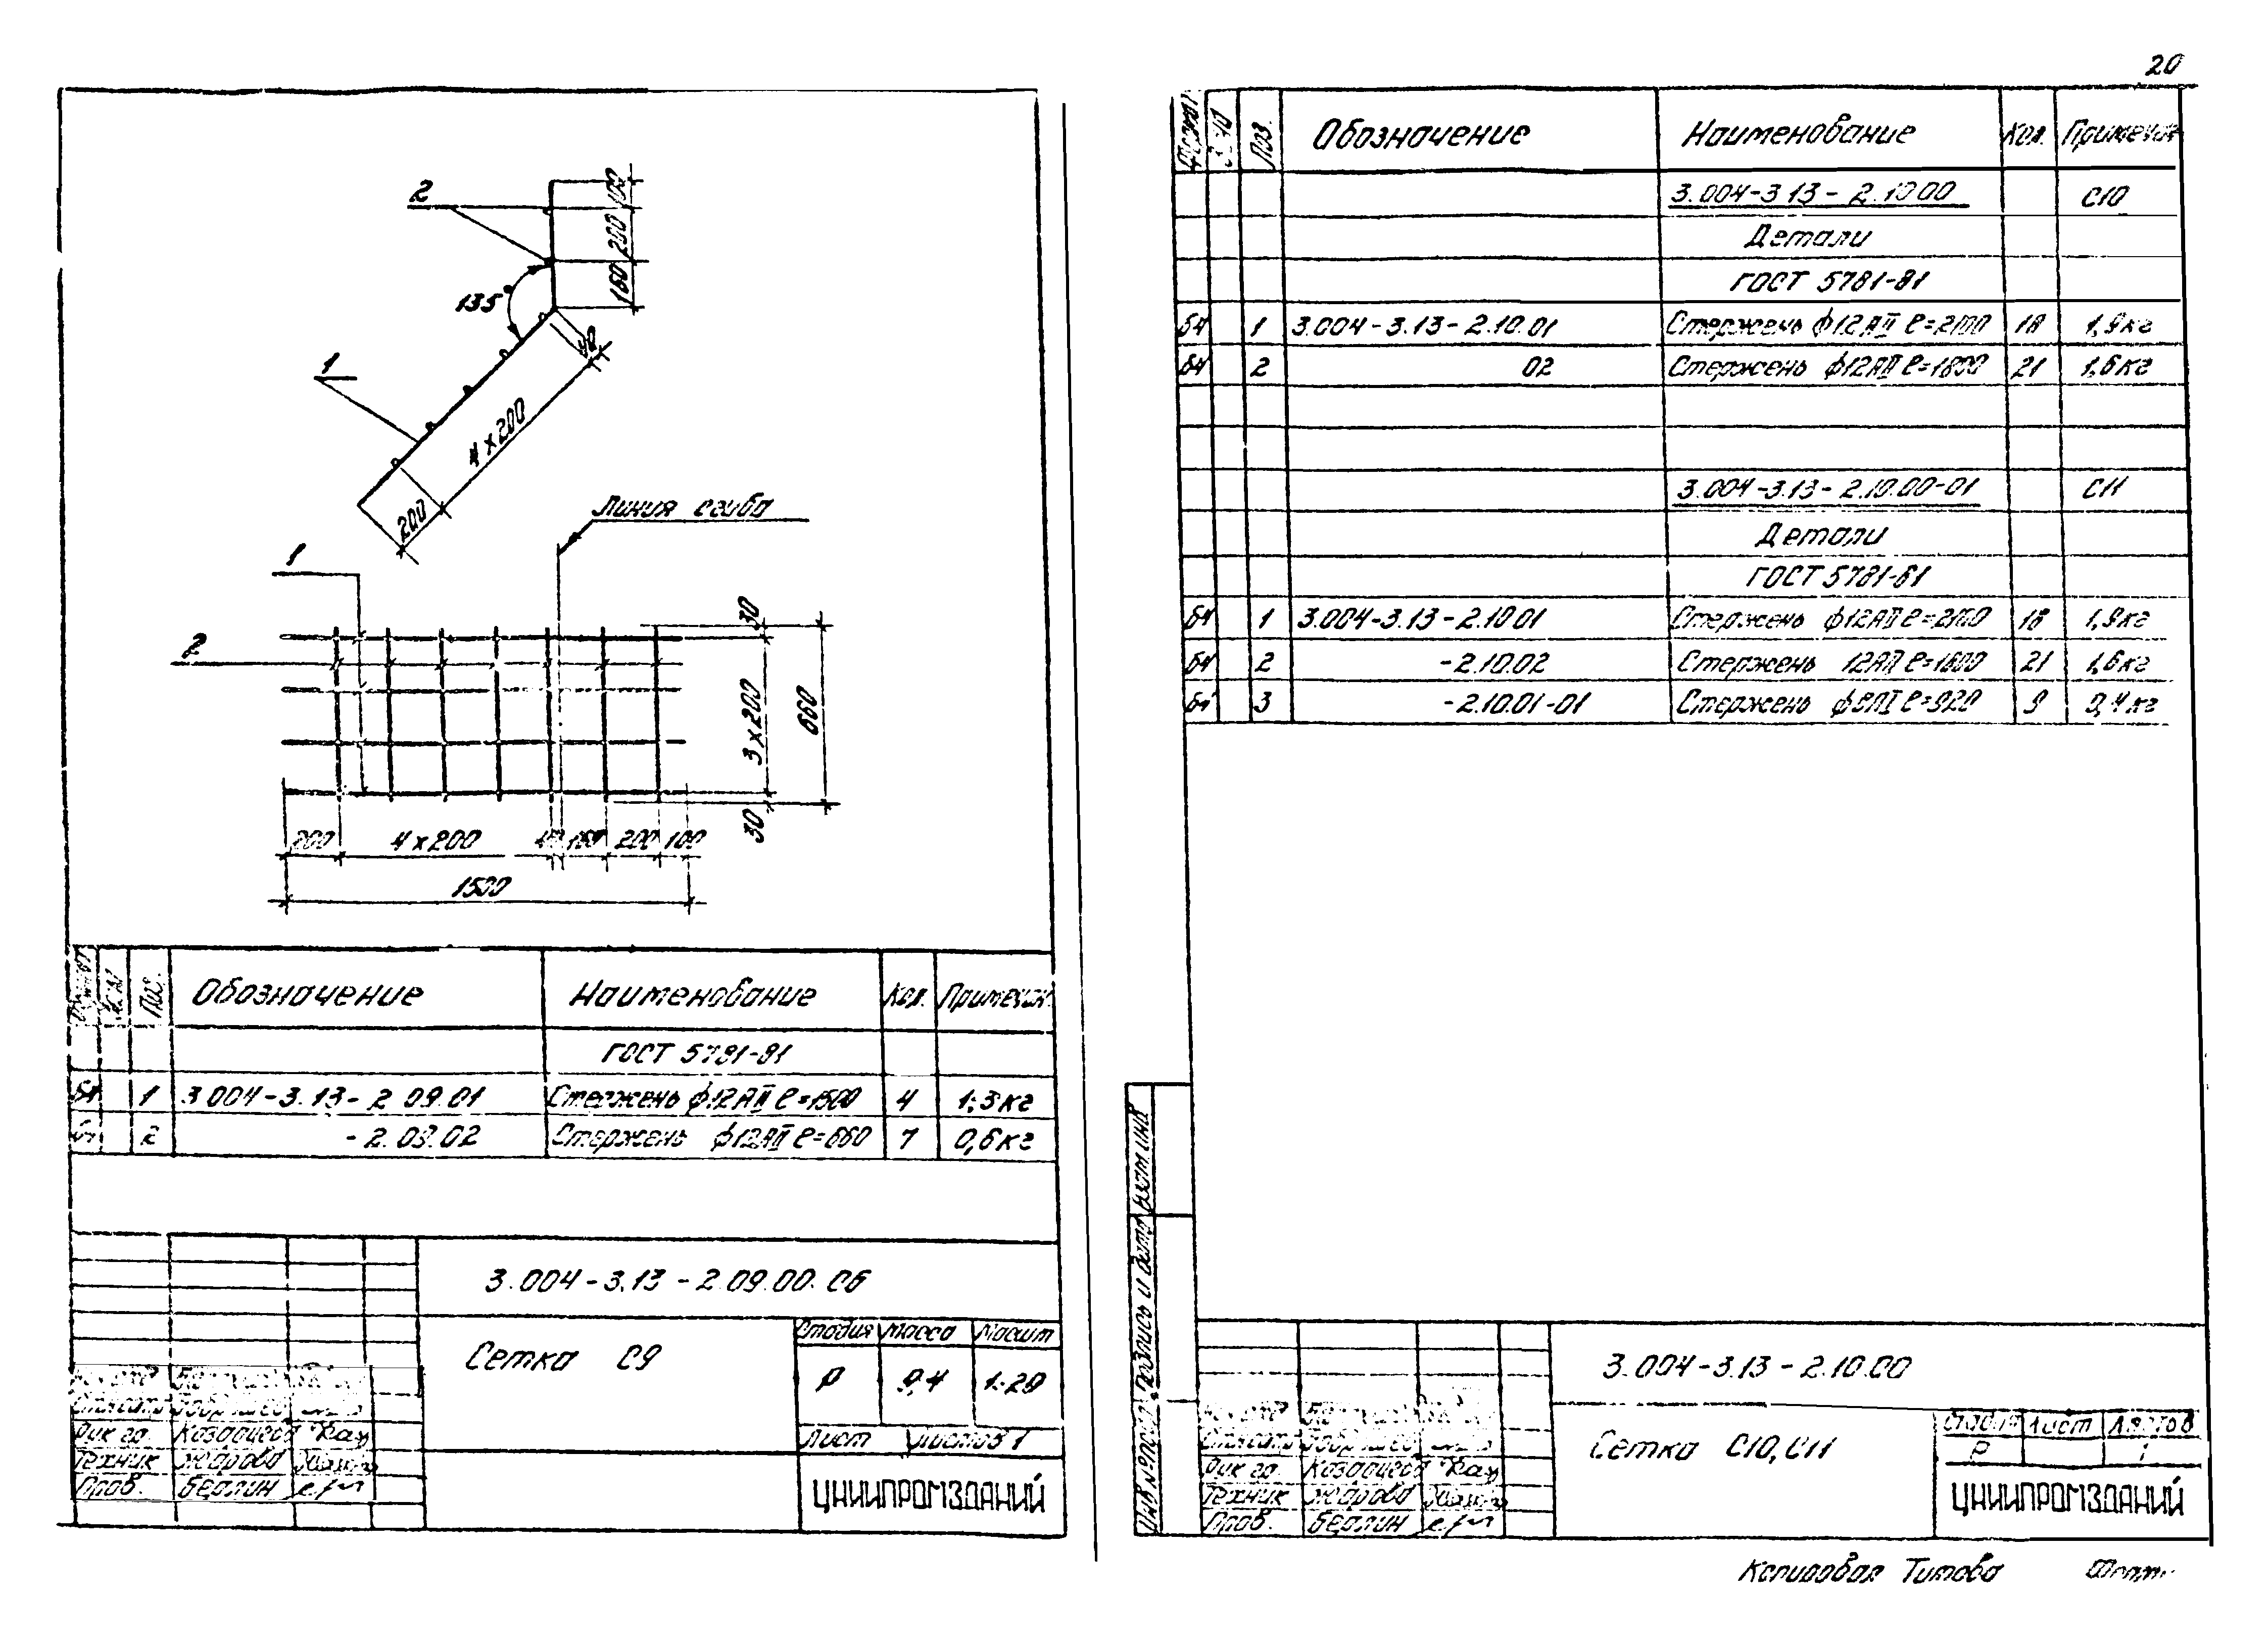 20
2
100
200
160
135°
40
1
4 х 200
200
Линия сгиба
1
2
30
3 х 200
660
30
200 4 х 200 40 160 200 100
1500
Поз. Обозначение Наименование Кол. Примечан.
ГОСТ 5781-81
БЧ 1 3.004-3.13-2.09.01 Стержень ф12АII ℓ=1500 4 1,3кг
БЧ 2 -2.09.02 Стержень ф12АII ℓ=660 7 0,6кг
3.004-3.13-2.09.00.СБ
Сетка С9
Стадия Масса Масшт
Р 9,4 1:20
Лист Листов 1
ЦНИИПРОМЗДАНИЙ
Рук гр.
Техник Жарова
Пров. Берлин
Формат Зона Поз. Обозначение Наименование Кол. Примечан
3.004-3.13-2.10.00 С10
Детали
ГОСТ 5781-81
БЧ 1 3.004-3.13-2.10.01 Стержень ф12АII ℓ=2100 18 1,9кг
БЧ 2 02 Стержень ф12АII ℓ=1800 21 1,6кг
3.004-3.13-2.10.00-01 С11
Детали
ГОСТ 5781-81
БЧ 1 3.004-3.13-2.10.01 Стержень ф12АII ℓ=2100 18 1,9кг
БЧ 2 -2.10.02 Стержень 12АII ℓ=1800 21 1,6кг
БЧ 3 -2.10.01-01 Стержень ф8АI ℓ=920 9 0,4кг
Подпись и дата
3.004-3.13-2.10.00
Сетка С10, С11
Стадия Лист Листов
Р 1
ЦНИИПРОМЗДАНИЙ
Рук гр.
Техник Жарова
Пров. Берлин
Копировал Титова